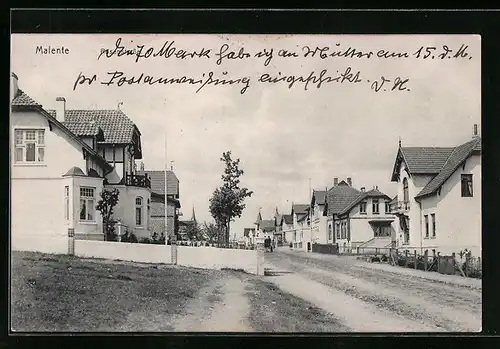 Malente
Die 70 Mark habe ich an Mutter am 15. d. M.
pr Postanweisung eingeschickt. D. H.